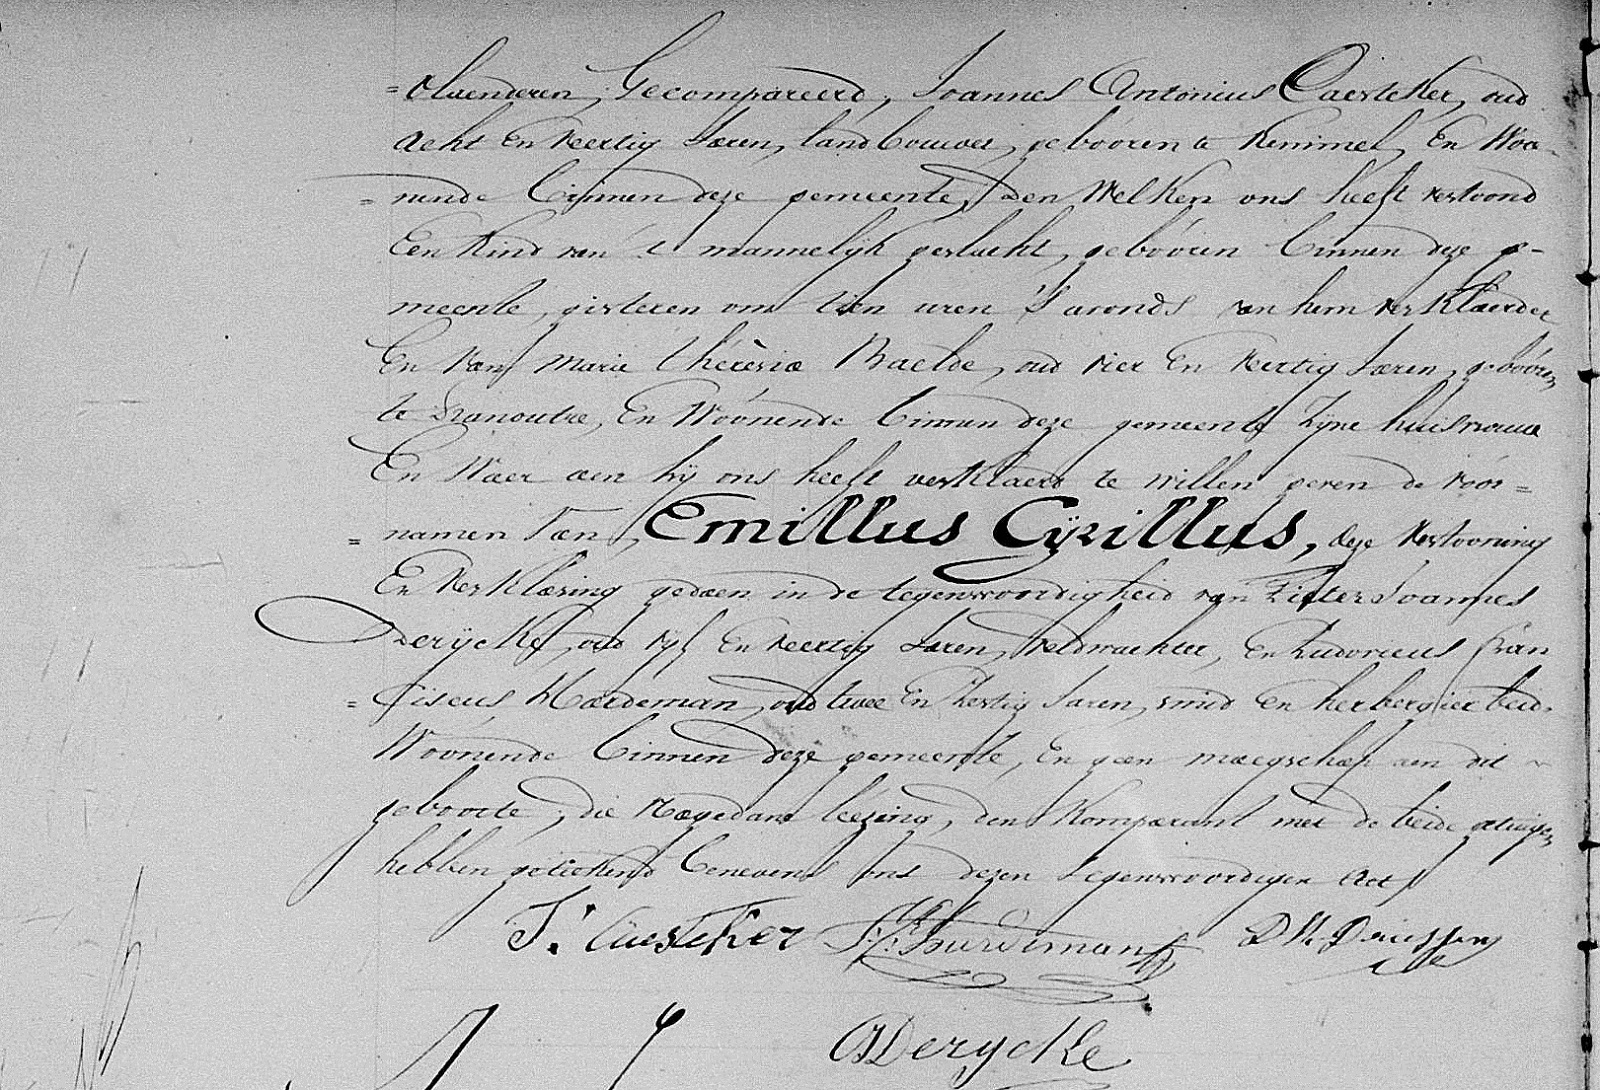 =vlaenderen, Gecompareerd, Joannes Antonius Caesteker, oud
acht En Veertig Jaren, landbouwer, gebóoren te Kemmel, En Woo-
=nende binnen deze gemeente, den Welken ons heeft vertoond
Een Kind van 't mannelyk geslacht, gebóoren binnen deze ge-
meente, gisteren om tien uren 's avonds van hem verklaerder
En Van Marie Thérèsia Baelde, oud vier En Veertig Jaren, gebóoren
te Dranoutre, En Woónende binnen deze gemeente Zyne huisvrouw
En Waer aen hy ons heeft verklaerd te willen geven de vóor=
=namen van, Emillus Cyrillus, deze Vertooning
En Verklaring gedaen in de tegenwoordigheid van Pieter Joannes
Derycke, oud vyf En Veertig Jaren, Veldwachter, En Ludovicus Fran
=siscus Hardeman, oud twee En Jaren, smid En herbergier beid.
Woónende binnen deze gemeente, En geen maegschap aen dit
geboorte, die Naegedane lézing, den Komparant met de beide getuigen
hebben geteekend benevens ons dezen tegenwoordigen Act
J. Caesteker Hardeman
Derycke